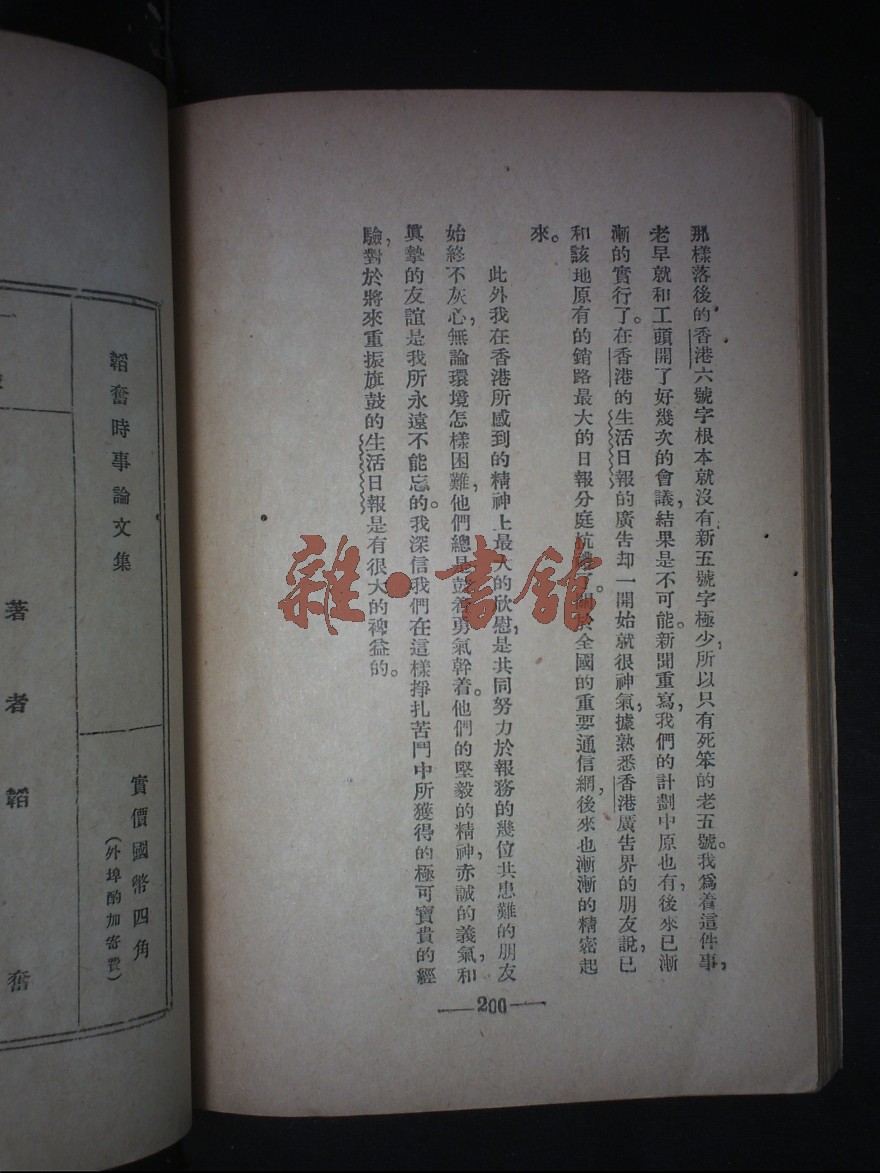 那樣落後的香港六號字根本就沒有新五號字極少，所以只有死笨的老五號。我爲着這件事，
老早就和工頭開了好幾次的會議，結果是不可能。新聞重寫，我們的計劃中原也有，後來已漸
漸的實行了。在香港的生活日報的廣告却一開始就很神氣，據熟悉香港廣告界的朋友說，已
和該地原有的銷路最大的日報分庭抗禮了。關於全國的重要通信網，後來也漸漸的精密起
來。
此外我在香港所感到的精神上最大的欣慰，是共同努力於報務的幾位共患難的朋友
始終不灰心，無論環境怎樣困難，他們總是鼓着勇氣幹着。他們的堅毅的精神，赤誠的義氣，和
眞摯的友誼是我所永遠不能忘的。我深信我們在這樣掙扎苦鬥中所獲得的極可寶貴的經
驗，對於將來重振旗鼓的生活日報是有很大的裨益的。
—200—
雜·書館
韜奮時事論文集
實價國幣四角
（外埠酌加寄費）
著者 韜奮